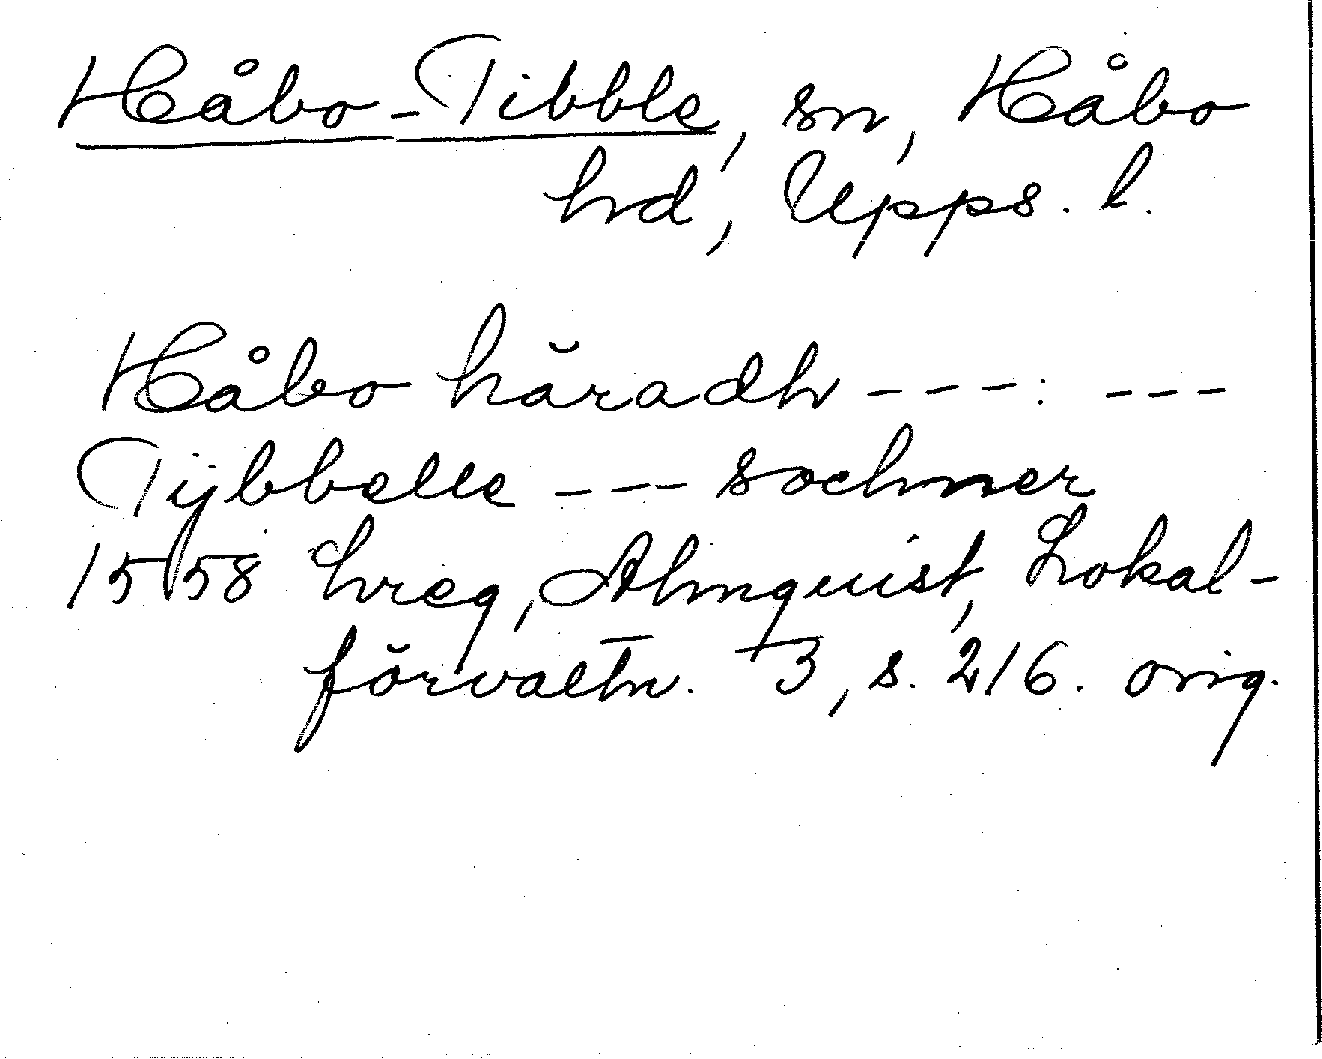 Håbo-Tibble, sn, Håbo
hd, Upps. l.
Håbo häradh ---: ---
Tÿbbelle --- sochner
1558 hreg, Almquist, Lokal-
förvaltn. 3, s. 216. orig.